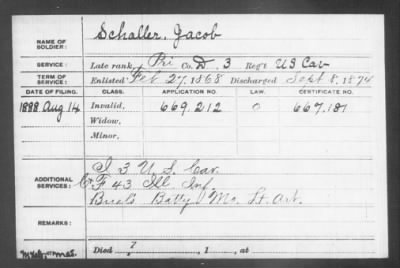 NAME OF SOLDIER: Schaller, Jacob
SERVICE: Late rank, Pri Co. D. 3 Reg't US Cav
TERM OF SERVICE: Enlisted Feb 27, 1868 Discharged Sept 8, 1874
DATE OF FILING. CLASS. APPLICATION NO. LAW. CERTIFICATE NO.
1888 Aug 14 Invalid. 669.212 O 667.181
Widow.
Minor.
I 3 U.S. Cav.
ADDITIONAL SERVICES: F 43 Ill. Inf.
Buel's Batty Mo. Lt. Art.
REMARKS:
Died ?, 1 , at